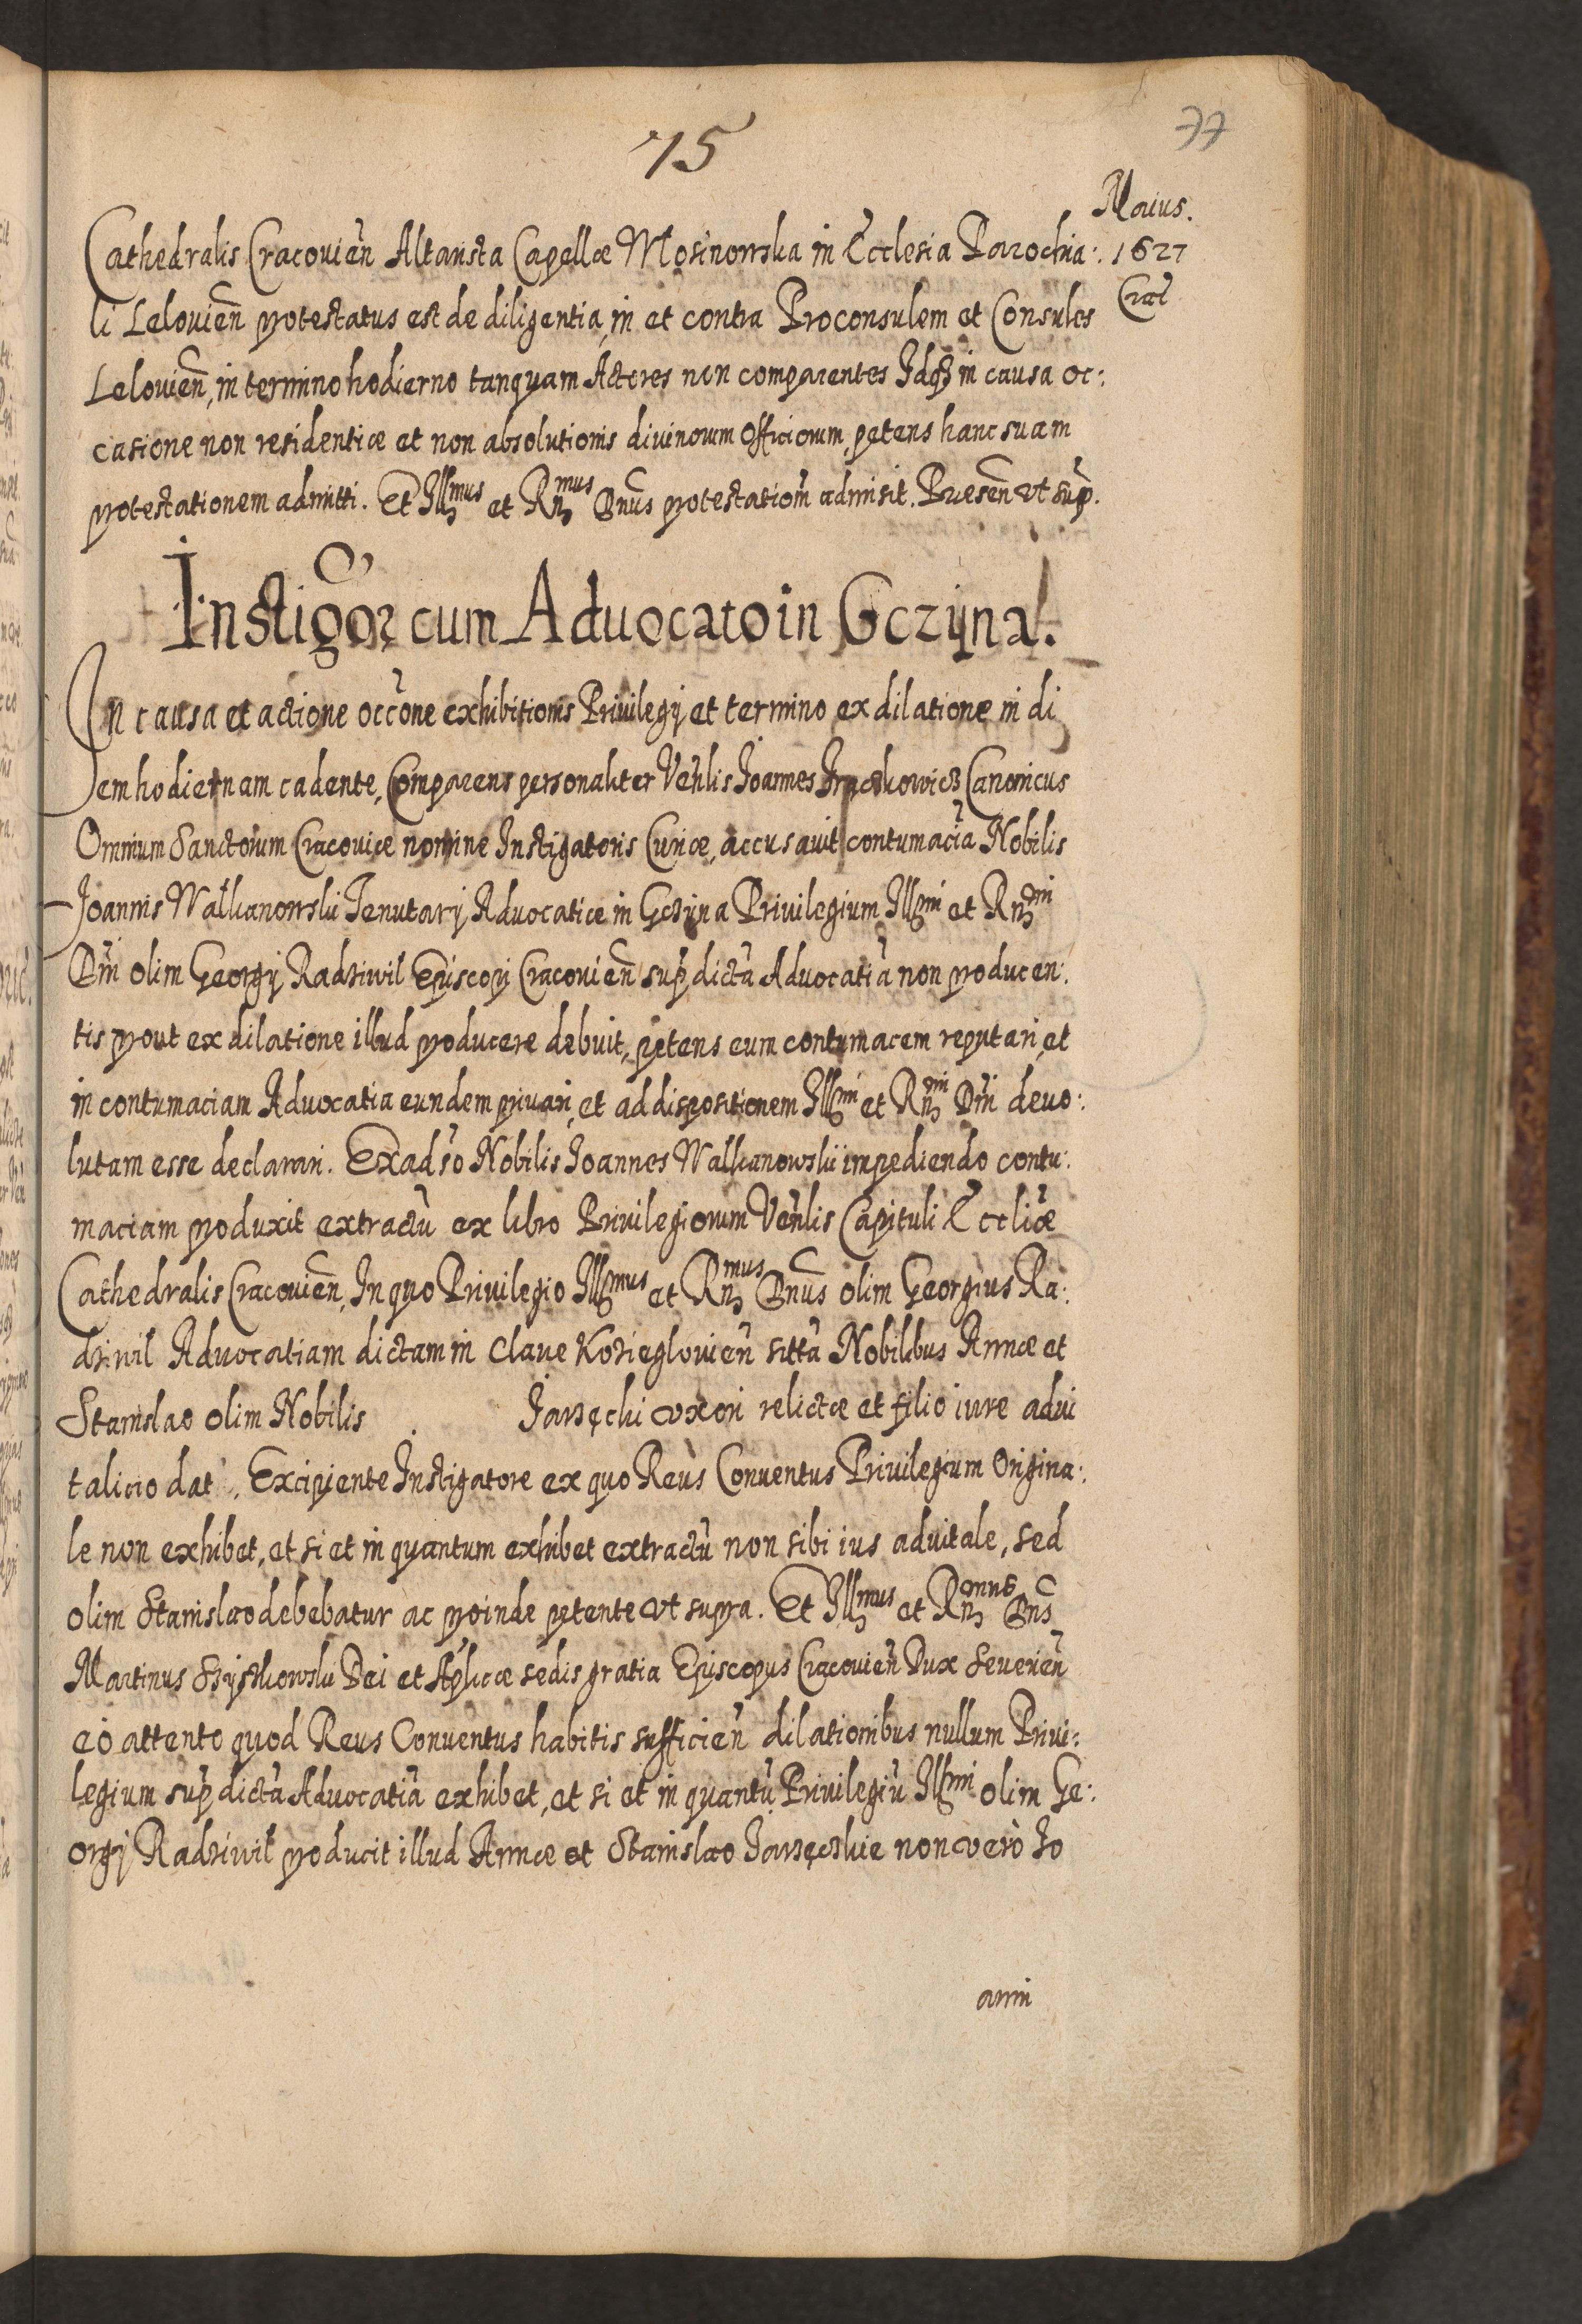 75
77
Maius.
1627
Crac̃
Cathedralis Cracouien̄ Altarista Capellæ Mosinowska in Ecclesia Parochia:
li Lelouien̄ protestatus est de diligentia, in et contra Proconsulem et Consules
Lelouien̄, in termino hodierno tanquam Actores non comparentes Idqꝫ in causa oc:
casione non residentiæ et non absolutionis diuinorum officiorum, petens hanc suam
protestationem admitti. Et Illꝫmus et Rn̄ꝫmus Dn̄us protestatiōm admisit. Præsen̄ vt sup̄.
Instigoȓ cum Aduocato in Gczijna.
In causa et actione occōne exhibitionis Priuilegij et termino ex dilatione in di
em hodiernam cadente, Comparens personaliter Ven̄lis Joannes Canonicus
Omnium Sanctorum Cracouiæ nomine Instigatoris Curiæ, accusauit contumaciā Nobilis
Joannis Walkanowski Tenutarij Aduocatiæ in Gczijna Priuilegium Illꝫmi et Rn̄ꝫmi
Dn̄i olim Georgij Radziwil Episcopi Cracouien̄ sup̄ dictā Aduocatiā non producen:
tis prout ex dilatione illud producere debuit, petens eum contumacem reputari, et
in contumaciam Aduocatia eundem priuari, et ad dispositionem Illꝫmi et Rn̄ꝫmi Dn̄i deuo:
lutam esse declarari. Ex adūso Nobilis Joannes Walkanowskii impediendo contu:
maciam produxit extractū ex libro Priuilegiorum Ven̄lis Capituli Eccliæ̃
Cathedralis Cracouien̄, In quo Priuilegio Illꝫmus et Rn̄ꝫmus Dn̄us olim Georgius Ra:
dziwil Aduocatiam dictam in Claue Kozieglouien̄ sittā Nobilibus Annæ et
Stanislao olim Nobilis Jarzęcki vxori relictæ et filio iure adui
talicio dat. Excipiente Instigatore ex quo Reus Conuentus Priuilegium Origina:
le non exhibet, et si et in quantum exhibet extractū non sibi ius aduitale, sed
olim Stanislao debebatur ac proinde petente vt supra. Et Illꝫmus et Rn̄ꝫmus Dn̄s
Martinus Szyszkowski Dei et Ap̄licæ sedis gratia Episcopus Cracouien̄ Dux Seuerien̄
eo attento quod Reus Conuentus habitis sufficien̄ dilationibus nullum Priui:
legium sup̄ dictā Aduocatiā exhibet, et si et in quantū Priuilegiū Illꝫmi olim Ge:
orgij Radziwil producit illud Annæ et Stanislao Jarzęckie non verò Jo
anni